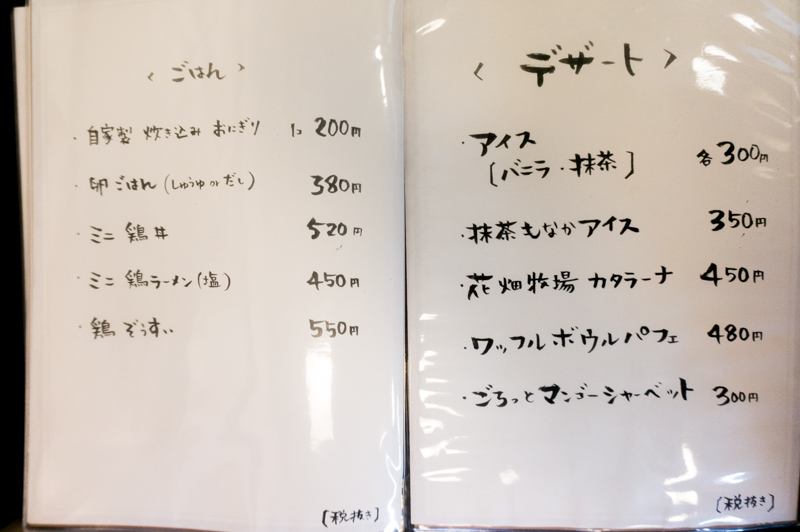 〈 ごはん 〉
・自家製 炊き込み おにぎり 1コ 200円
・卵ごはん (しょうゆ or だし) 380円
・ミニ 鶏丼 520円
・ミニ 鶏ラーメン (塩) 450円
・鶏ぞうすい 550円
[税抜き]
〈 デザート 〉
・アイス
[バニラ・抹茶] 各300円
・抹茶もなかアイス 350円
・花畑牧場 カタラーナ 450円
・ワッフルボウルパフェ 480円
・ごろっとマンゴーシャーベット 300円
[税抜き]